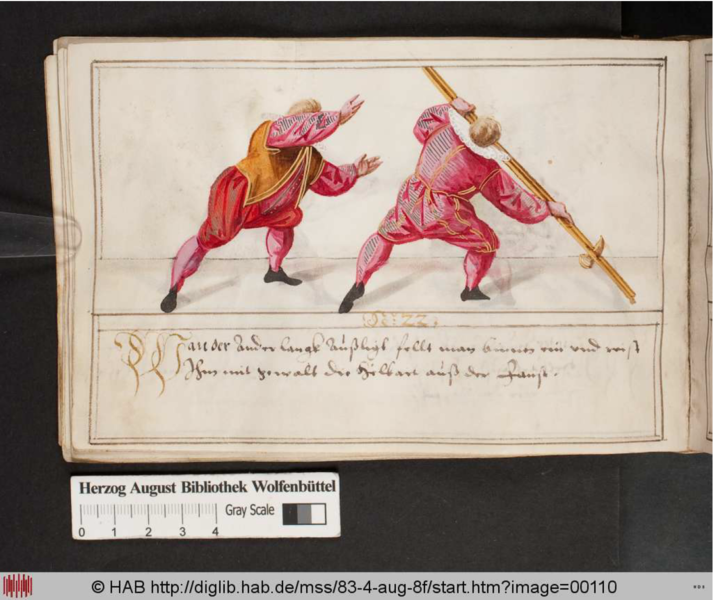 N: 22.
Wan der Ander langk außligt fellt man binnen ein und reist
Ihm mit gewalt die Helbart auß der Faust.
Herzog August Bibliothek Wolfenbüttel
Gray Scale
0 1 2 3 4
© HAB http://diglib.hab.de/mss/83-4-aug-8f/start.htm?image=00110